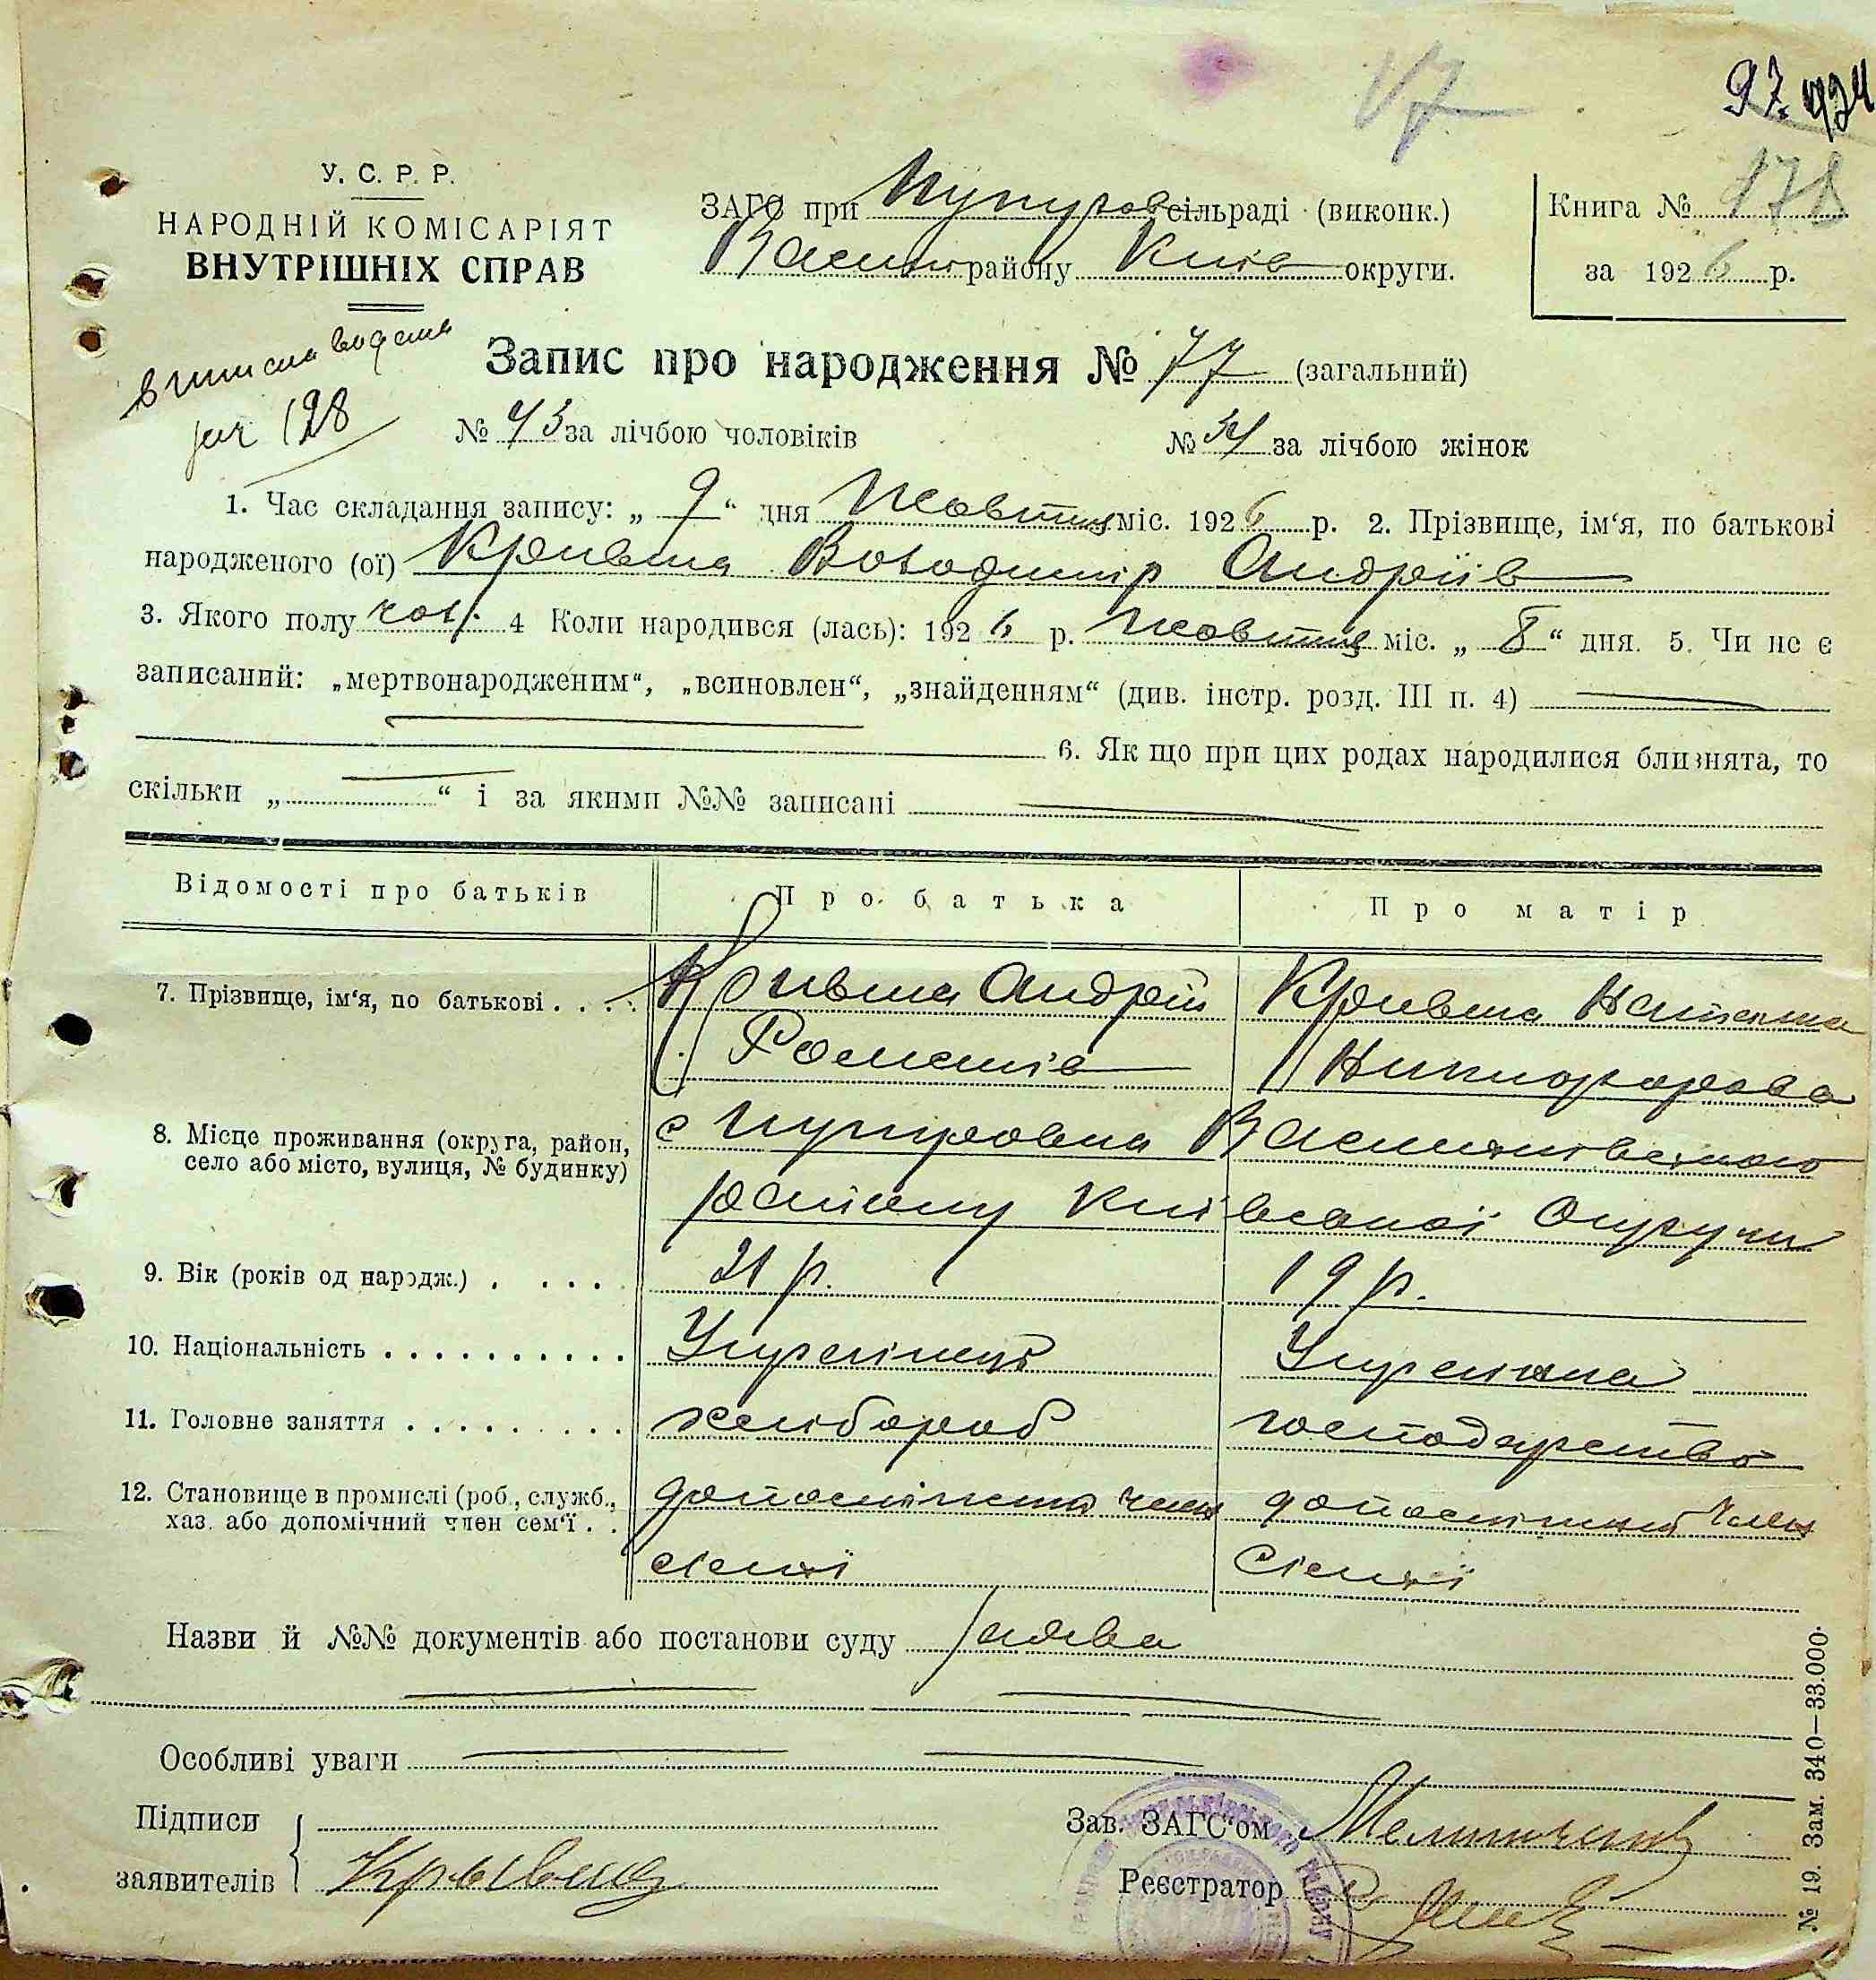 97.
17
178
У. С. Р. Р.
НАРОДНІЙ КОМІСАРІЯТ
ВНУТРІШНІХ СПРАВ
ЗАГС при сільраді (виконк.)
району Київ округи.
Книга №
за 1926 р.
Запис про народження № 77 (загальний)
128
№ 43 за лічбою чоловіків
№ 34 за лічбою жінок
1. Час складання запису: „ 9 “ дня Жовтня міс. 1926 р. 2. Прізвище, ім'я, по батькові
народженого (ої) Кривша Володимір Андріїв
3. Якого полу чол. 4 Коли народився (лась): 1926 р. Жовтня міс. „ 8 “ дня. 5. Чи не є
записаний: „мертвонародженим“, „всиновлен“, „знайденням“ (див. інстр. розд. III п. 4)
6. Як що при цих родах народилися близнята, то
скільки „ “ і за якими №№ записані
Відомості про батьків
Про батька
Про матір
7. Прізвище, ім'я, по батькові . . . .
Кривша Андрій
Романів
Кривша
8. Місце проживання (округа, район,
село або місто, вулиця, № будинку)
с
району Київської Округи
9. Вік (років од народж.) . . . . .
21 р.
19 р.
10. Національність . . . . . . . . . .
Українець
Українка
11. Головне заняття . . . . . . . . .
хлібороб
господарство
12. Становище в промислі (роб., служб.,
хаз. або допомічний член сем'ї . .
допомічний член
сімї
допомічний член
сімї
Назви й №№ документів або постанови суду заява
Особливі уваги
Підписи
заявителів
Зав. ЗАГС'ом
Реєстратор
№ 19. Зам. 340—33.000.